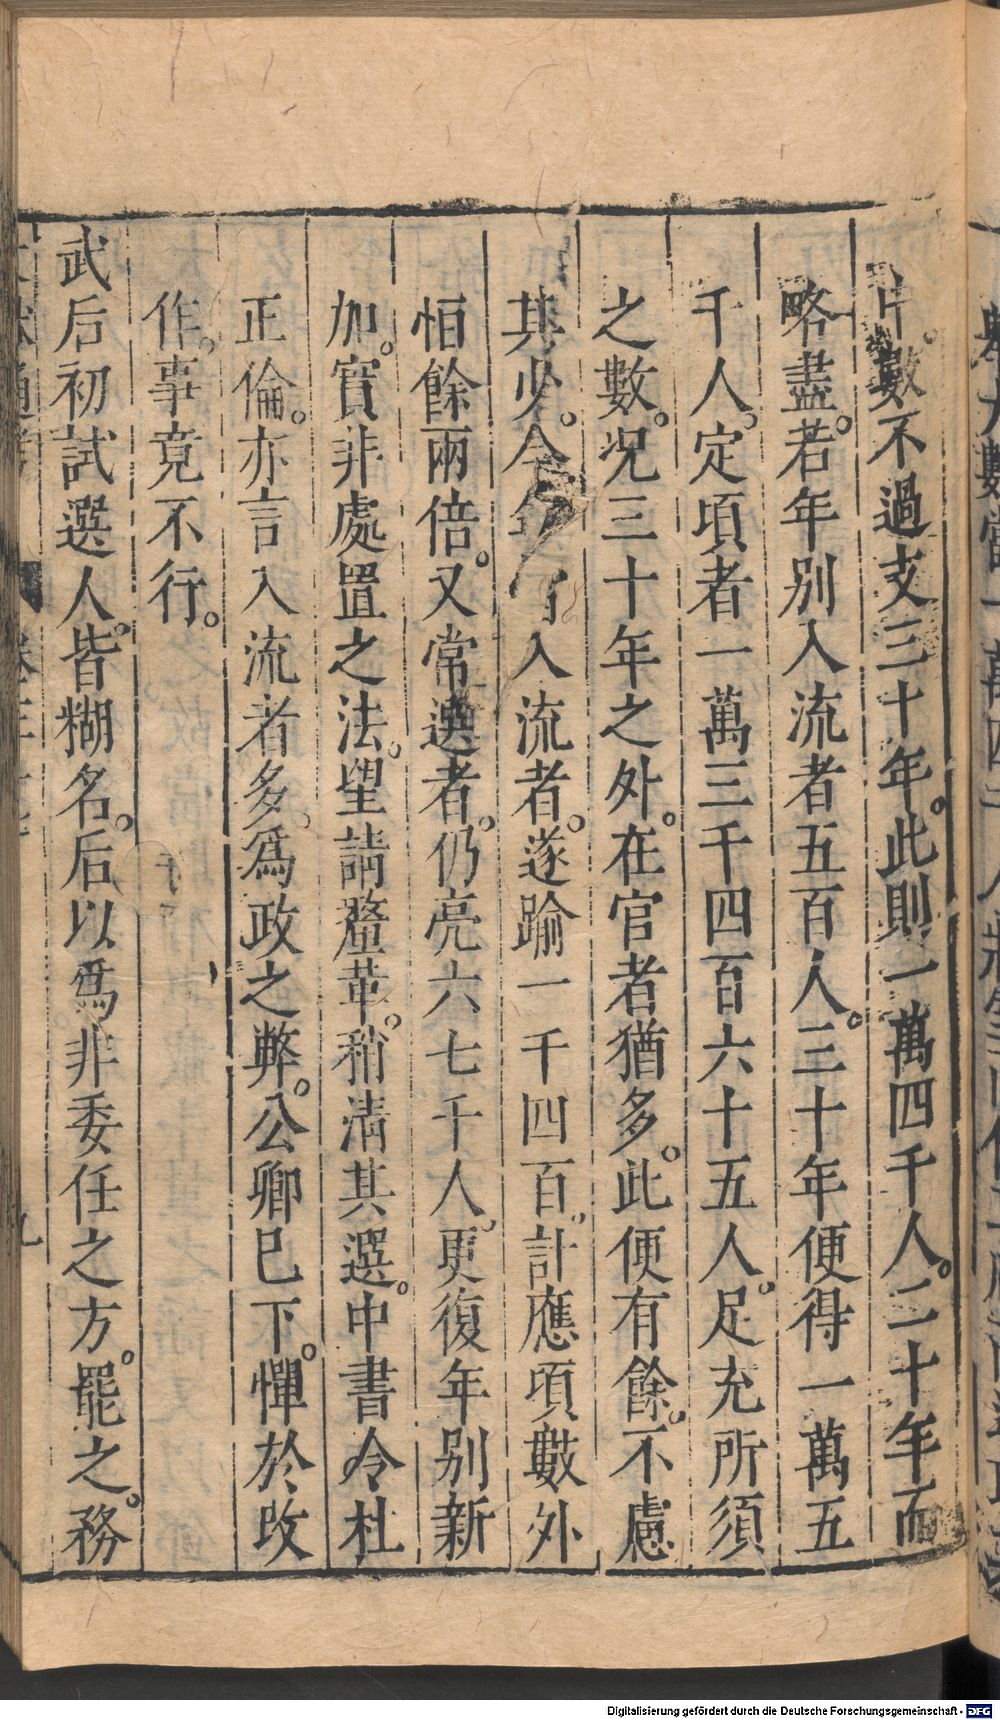 數不過支三十年。此則一萬四千人。二十年而
略盡。若年別入流者五百人。三十年便得一萬五
千人。定項者一萬三千四百六十五人。足充所須
之數。況三十年之外。在官者猶多。此便有餘。不慮
其少。今入流者。遂踰一千四百。計應項數外
恒餘兩倍。又常選者。仍亮六七千人。更復年別新
加。實非處置之法。望請釐革。稍清其選。中書令杜
正倫。亦言入流者多。爲政之弊。公卿已下。憚於改
作。事竟不行。
武后初試選人。皆糊名。后以爲非委任之方。罷之。務
Digitalisierung gefördert durch die Deutsche Forschungsgemeinschaft - DFG